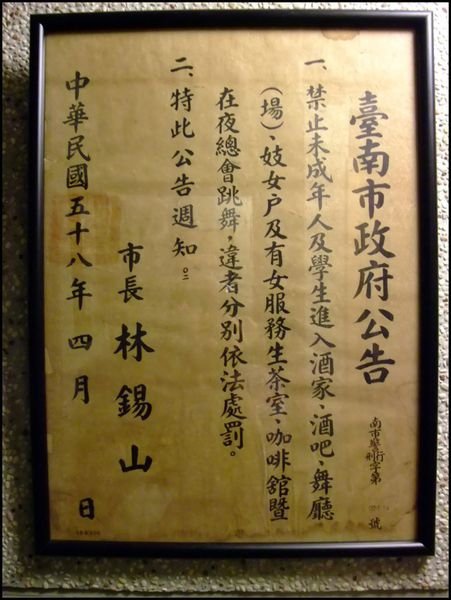 臺南市政府公告
南市警行刑字第 號
一、禁止未成年人及學生進入酒家、酒吧、舞廳
(場)、妓女户及有女服務生茶室、咖啡舘暨
在夜總會跳舞,違者分別依法處罰。
二、特此公告週知。
市長 林錫山
中華民國五十八年 四月 日